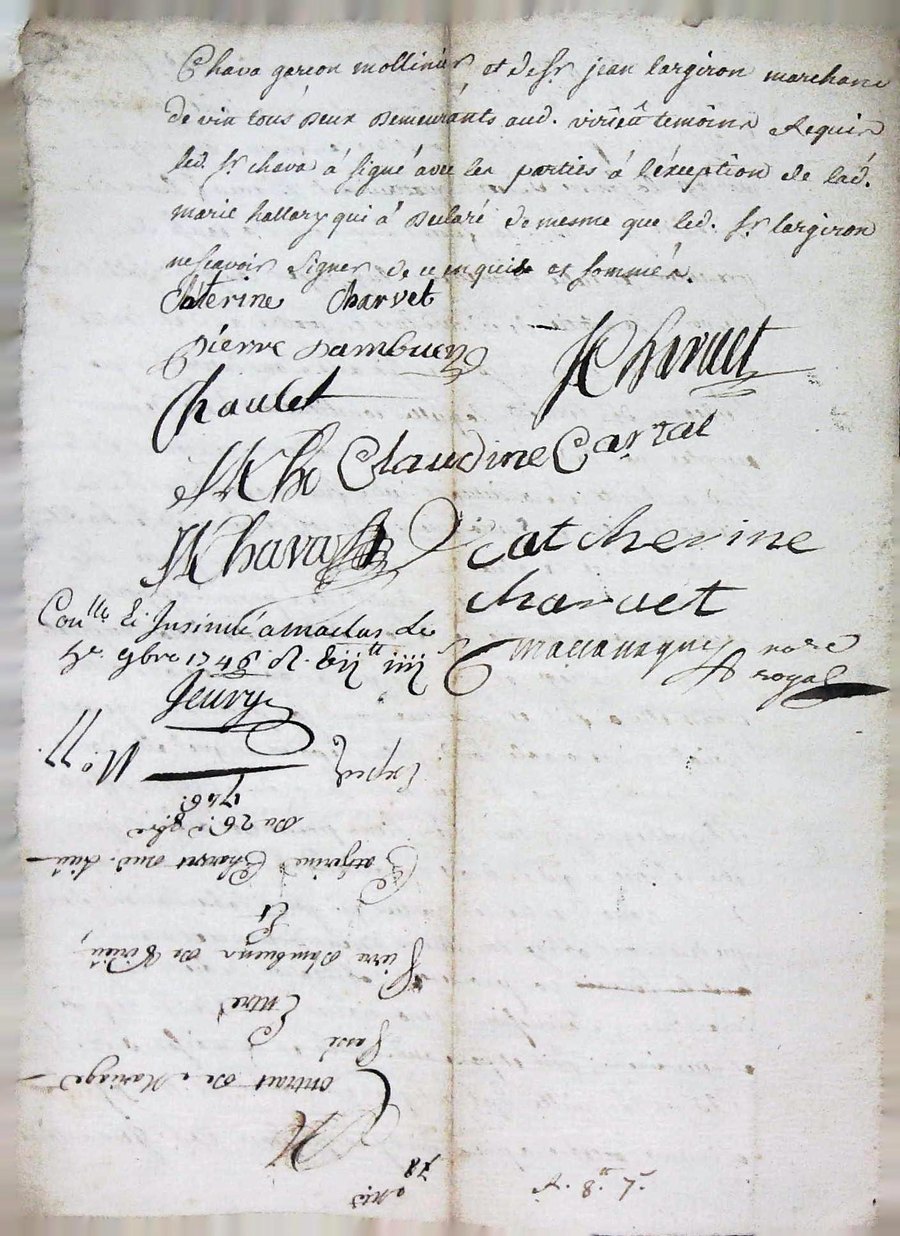 Chava garcon mollinier, et de sr jean largiron marchand
de vin tous deux demeurants aud. virieû temoins Requis
led. sr chava á signé avec les parties á l'éxception de lad.
marie hallory qui á declaré de mesme que led. sr largiron
nescavoir signer de ce enquis et sommés.
Caterine Charvet
pierre dambuen
JCharvet
Chaulet
Claudine Cartal
JChava
Catcherine
charvet
Conlle Et Insinué a
de 9bre 1746
Jeury
notre
royal
Contrat de Mariage
Passé
Entre
Pierre dambuen de Virieu,
Et
Catherine Charvet dud. lieu
Du 26e 8bre
1746.
Expedié
No. 77.
78
A. 8.tt 7.s